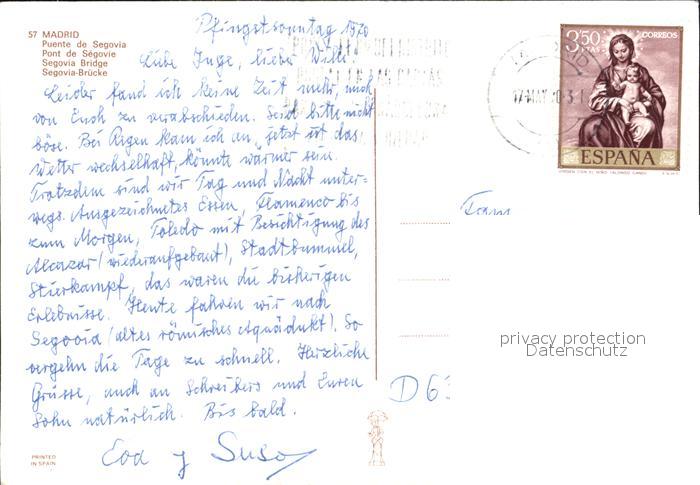 57 MADRID
Puente de Segovia
Pont de Ségovie
Segovia Bridge
Segovia-Brücke
Pfingstsonntag 1970
Liebe Inge, lieber Willi!
Leider fand ich keine Zeit mehr, mich
von Euch zu verabschieden. Seid bitte nicht
böse. Bei Regen kam ich an, jetzt ist das
Wetter wechselhaft, könnte wärmer sein.
Trotzdem sind wir Tag und Nacht unter-
wegs. Ausgezeichnetes Essen, Flamenco bis
zum Morgen, Toledo mit Besichtigung des
Alcazar (wiederaufgebaut), Stadtbummel,
Stierkampf, das waren die bisherigen
Erlebnisse. Heute fahren wir nach
Segovia (altes römisches Aquädukt). So
vergehn die Tage zu schnell. Herzliche
Grüsse, auch an Schreibers und Euren
Sohn natürlich. Bis bald.
Eva y Suso
PRINTED
IN SPAIN
3'50
PTAS
CORREOS
MADRID
17 MAY
ESPAÑA
VIRGEN CON EL NIÑO (ALONSO CANO)
Frau
D 63
privacy protection
Datenschutz